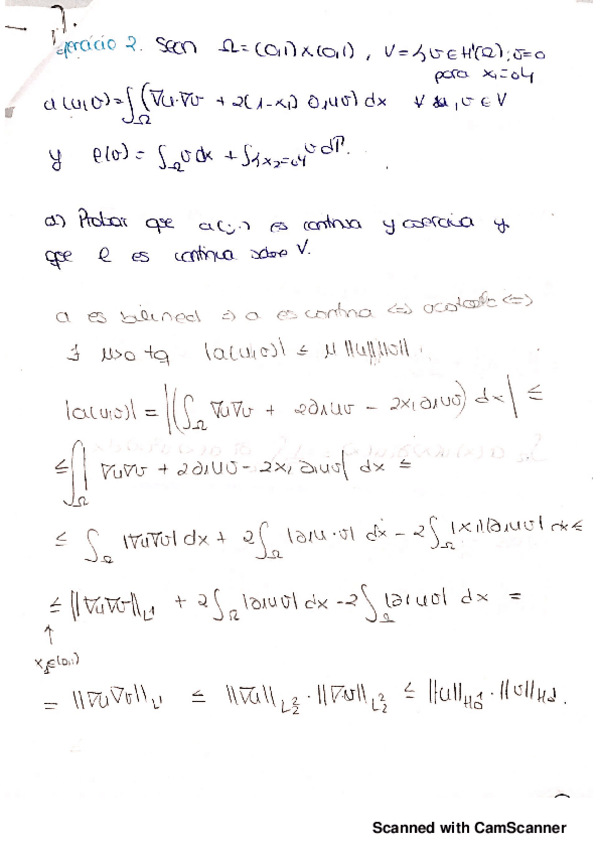 Ejercicio 2. Sean Ω = (0,1)×(0,1), V = {v ∈ H¹(Ω); v=0
para x₁=0}
a(u,v) = ∫_Ω (∇u·∇v + 2(1-x₁) ∂₁u v) dx ∀ u, v ∈ V
y ℓ(v) = ∫_Ω v dx + ∫_{x₂=0} v dΓ.
a) Probar que a(·,·) es continua y coerciva y
que ℓ es continua sobre V.
a es bilineal ⇒ a es continua ⇔ acotada ⇔
∃ M>0 tq |a(u,v)| ≤ M ||u|| ||v||.
|a(u,v)| = |(∫_Ω ∇u∇v + 2∂₁uv - 2x₁∂₁uv) dx| ≤
≤ ∫_Ω |∇u∇v + 2∂₁uv - 2x₁∂₁uv| dx ≤
≤ ∫_Ω |∇u∇v| dx + 2∫_Ω |∂₁u·v| dx - 2∫_Ω |x₁||∂₁uv| dx ≤
≤ ||∇u∇v||_L¹ + 2∫_Ω |∂₁uv| dx - 2∫_Ω |∂₁uv| dx =
↑
x₁∈(0,1)
= ||∇u∇v||_L¹ ≤ ||∇u||_L² · ||∇v||_L² ≤ ||u||_H¹₀ · ||v||_H¹₀.
Scanned with CamScanner